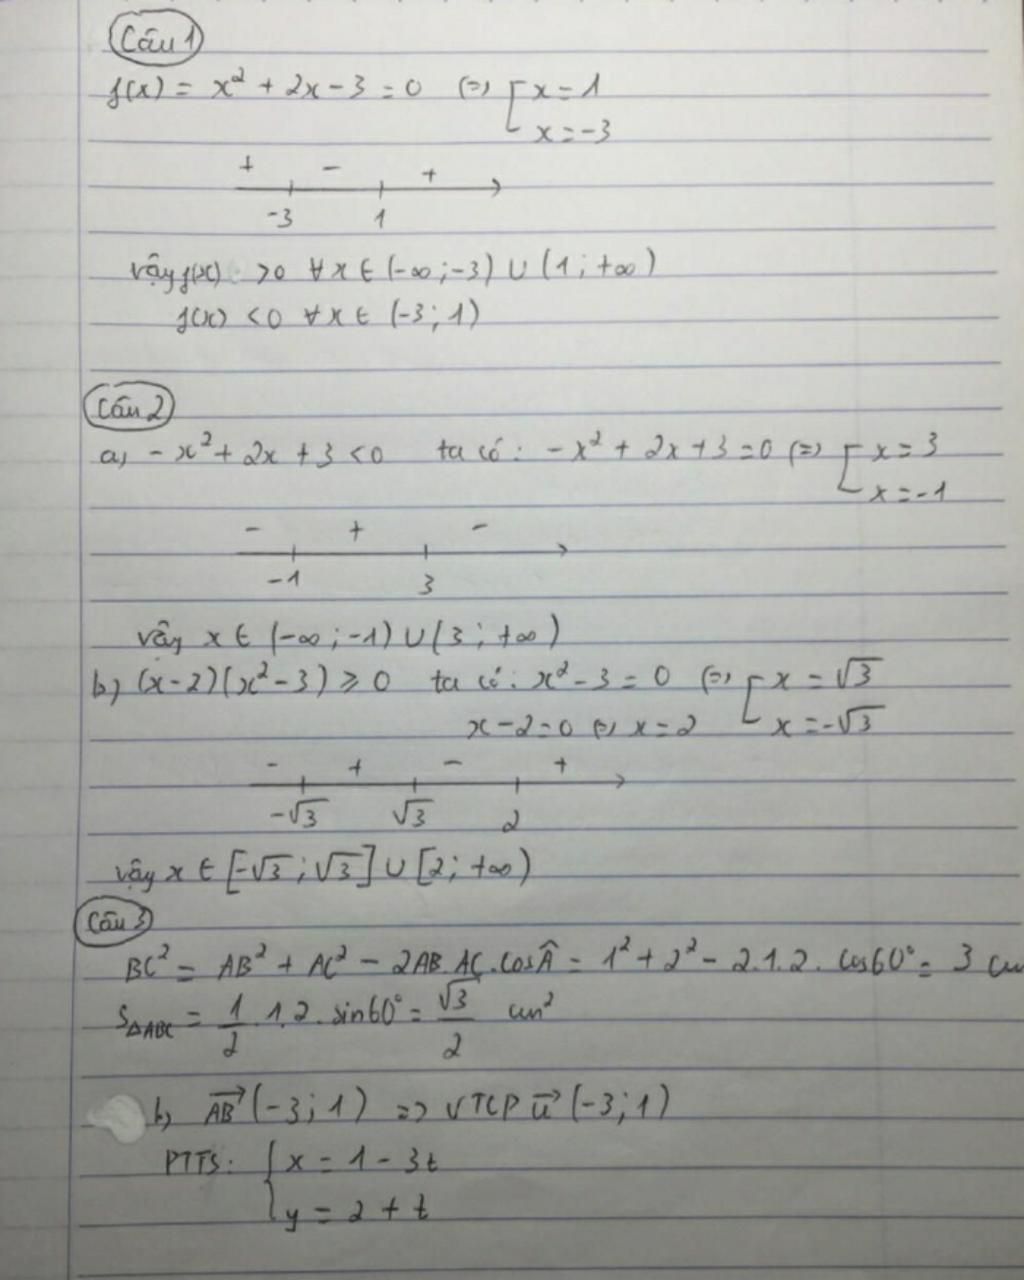 Câu 1
f(x) = x² + 2x - 3 = 0 (=) [ x = 1
x = -3
+ - +
-3 1
vậy f(x) >0 ∀x ∈ (-∞;-3) ∪ (1;+∞)
f(x) <0 ∀x ∈ (-3;1)
Câu 2
a, -x² + 2x + 3 <0 ta có: -x² + 2x + 3 = 0 (=) [ x = 3
x = -1
- + -
-1 3
vậy x ∈ (-∞;-1) ∪ (3;+∞)
b, (x-2)(x²-3) ≥ 0 ta có: x² - 3 = 0 (=) [ x = √3
x - 2 = 0 (=) x = 2 x = -√3
- + - +
-√3 √3 2
vậy x ∈ [-√3;√3] ∪ [2;+∞)
Câu 3
BC² = AB² + AC² - 2AB.AC.cosÂ = 1² + 2² - 2.1.2.cos60° = 3
S△ABC = 1/2 .1.2.sin60° = √3/2 cm²
b, AB→(-3;1) => VTCP u→(-3;1)
PTTS: { x = 1 - 3t
y = 2 + t